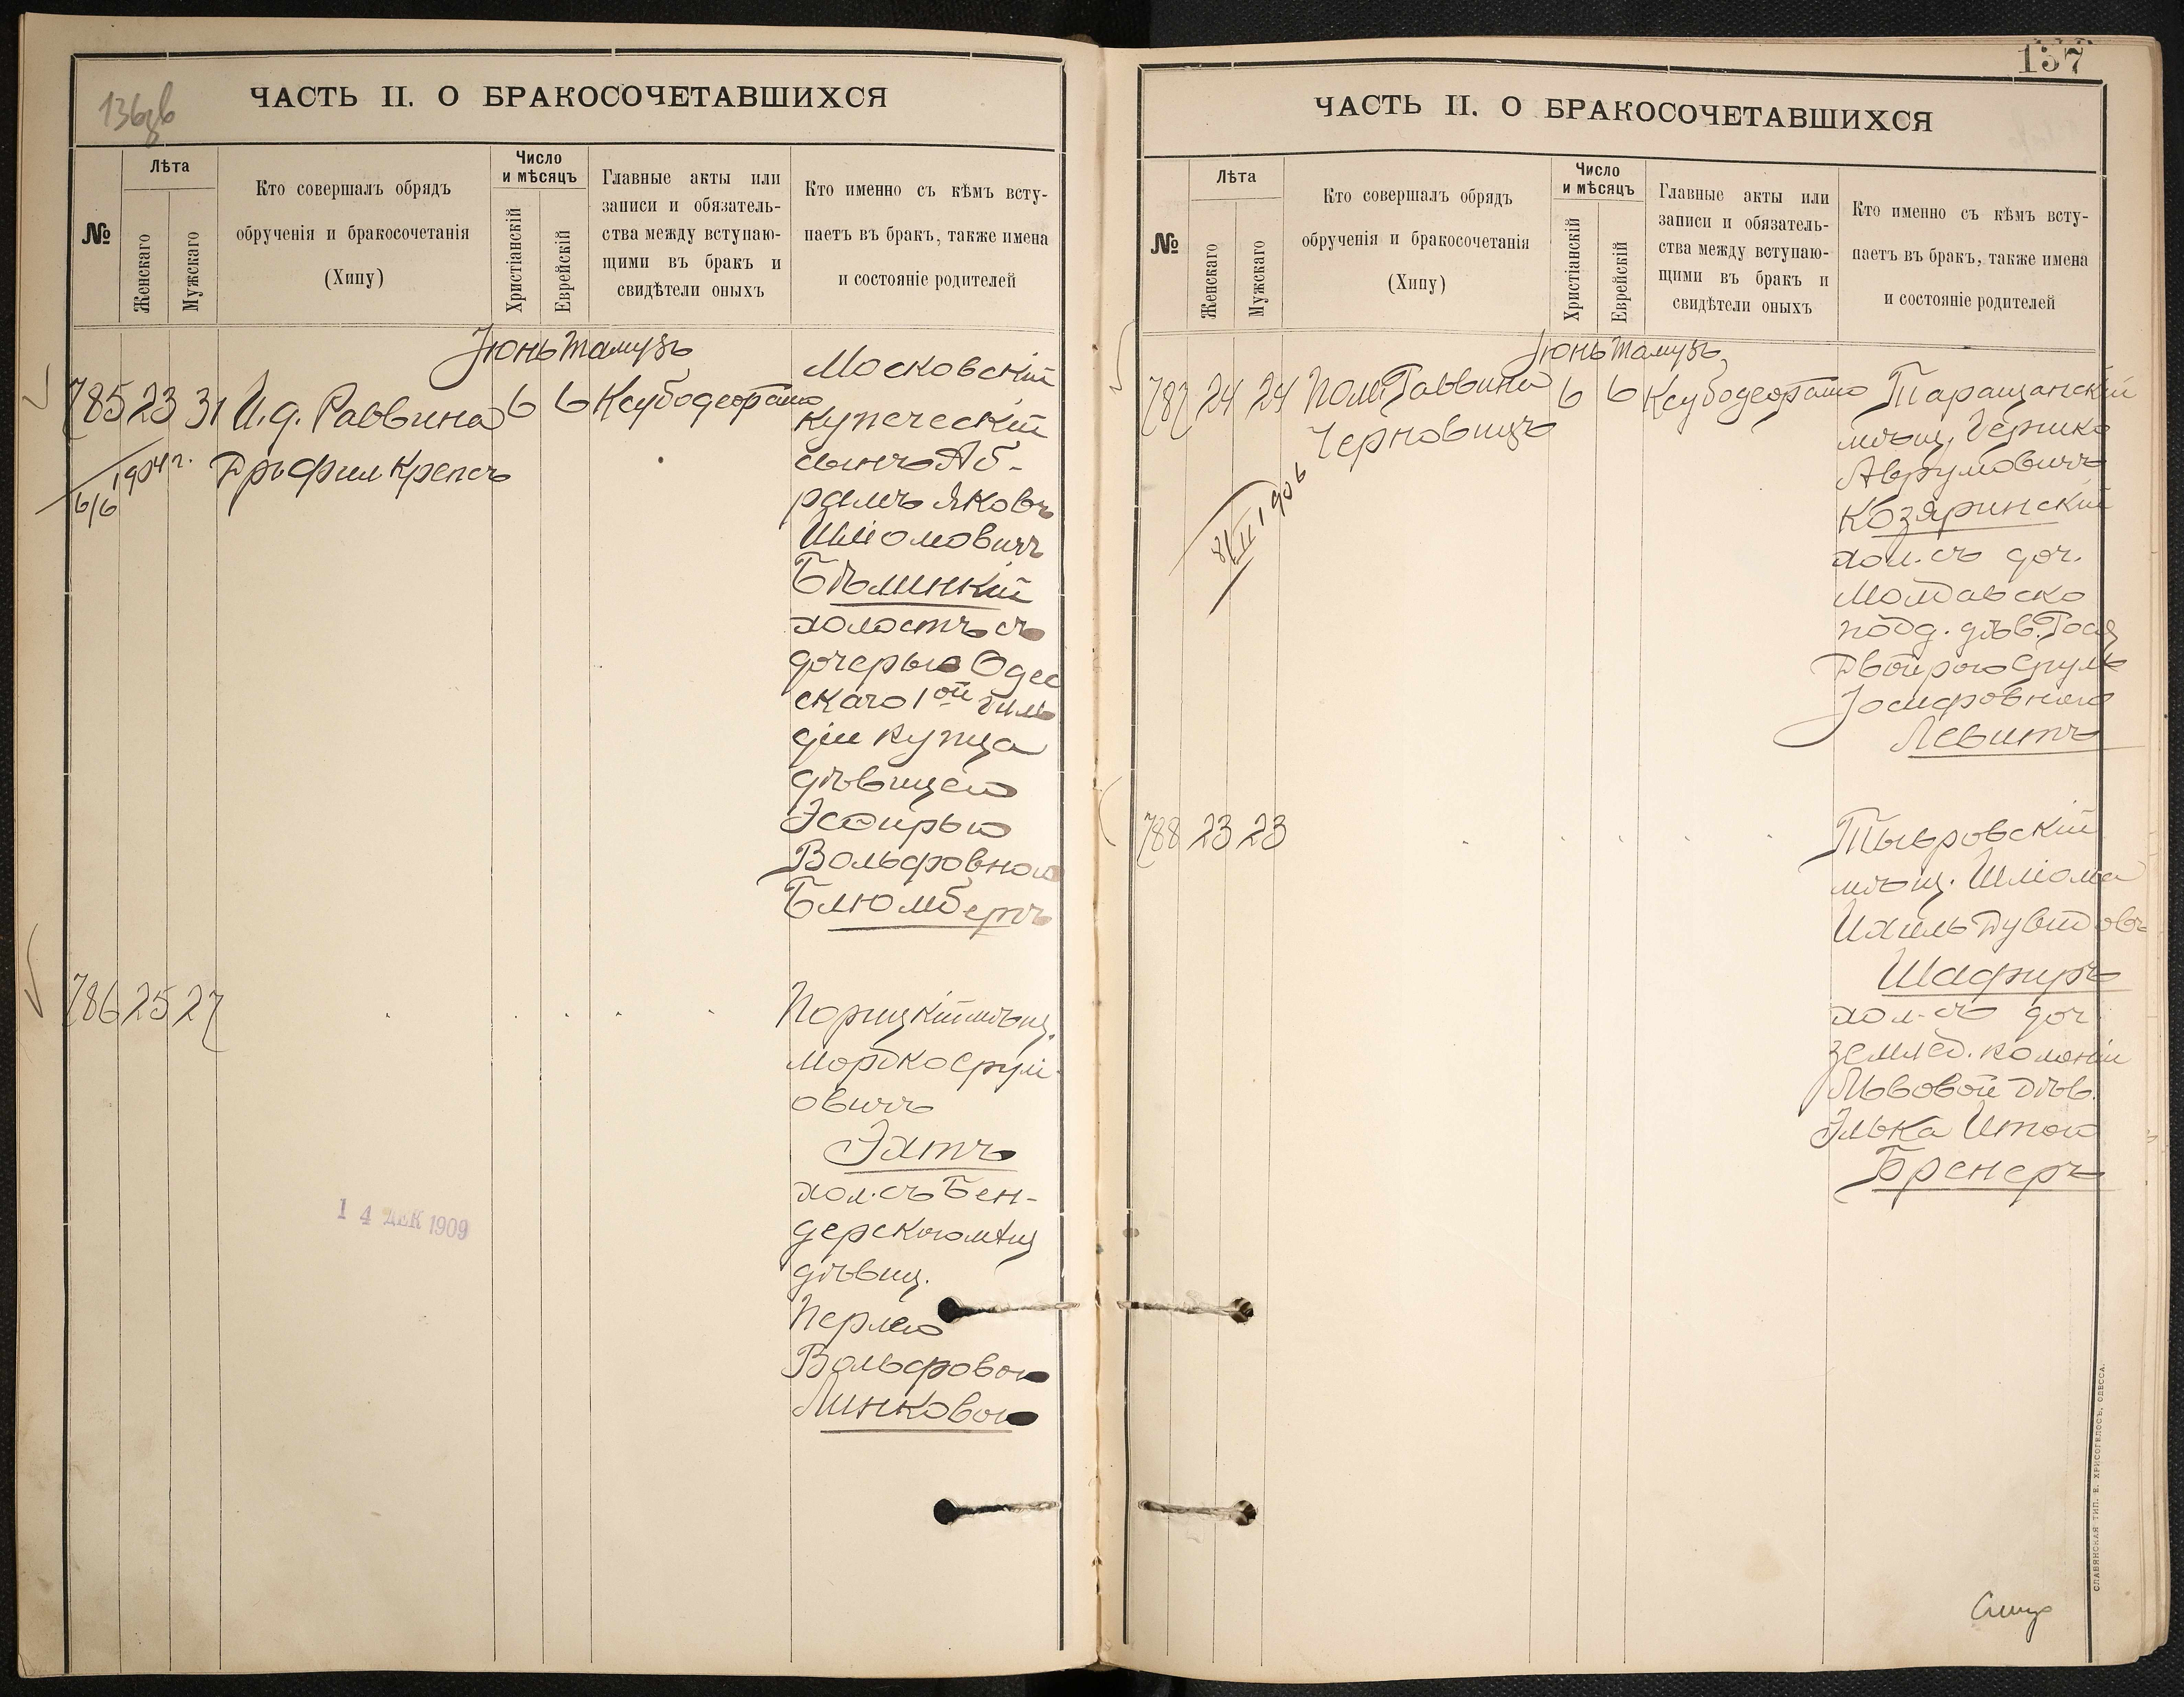 136об
ЧАСТЬ II. О БРАКОСОЧЕТАВШИХСЯ
№
Лѣта
Женскаго
Мужскаго
Кто совершалъ обрядъ
обрученія и бракосочетанія
(Хипу)
Число
и мѣсяцъ
Христіанскій
Еврейскій
Главные акты или
записи и обязатель-
ства между вступаю-
щими въ бракъ и
свидѣтели оныхъ
Кто именно съ кѣмъ всту-
паетъ въ бракъ, также имена
и состояніе родителей
Іюнь Тамузъ
785 23 31 И.д. Раввина 6 6
6/6 1904 г.
Московскій
купеческій
сынъ Аб-
рамъ Яковъ
Шліомовичъ
Бѣлинкій
холостъ съ
дочерью Одес
скаго 1ой гиль
діи купца
дѣвицею
Эсѳирью
Вольфовною
Блюмбергъ
786 25 27
Порицкій мѣщ.
Мордко Срул
овичъ
Эхтъ
хол. съ Бен-
дерскою мѣщ
дѣвиц.
Перлею
Вольфовою
Линковою
14 ДЕК 1909
157
ЧАСТЬ II. О БРАКОСОЧЕТАВШИХСЯ
№
Лѣта
Женскаго
Мужскаго
Кто совершалъ обрядъ
обрученія и бракосочетанія
(Хипу)
Число
и мѣсяцъ
Христіанскій
Еврейскій
Главные акты или
записи и обязатель-
ства между вступаю-
щими въ бракъ и
свидѣтели оныхъ
Кто именно съ кѣмъ всту-
паетъ въ бракъ, также имена
и состояніе родителей
Іюнь Тамузъ
787 24 24 Пом. Раввина 6 6
Черновицъ
8/II 1906
Таращанскій
мѣщ. Гершко
Аврумовичъ
Козяринскій
хол. съ доч.
Молдавско
подд. дѣв. Рося
Двойрою Сруль
Іосифовною
Левитъ
788 23 23
Тывровскій
мѣщ. Шліома
Ихиль Дувидовъ
Шафиръ
хол. съ доч
землед. колоніи
Львовой дѣв.
Элька Итою
Бренеръ
СЛАВЯНСКАЯ ТИП. Е. ХРИСОГЕЛОСЪ, ОДЕССА.